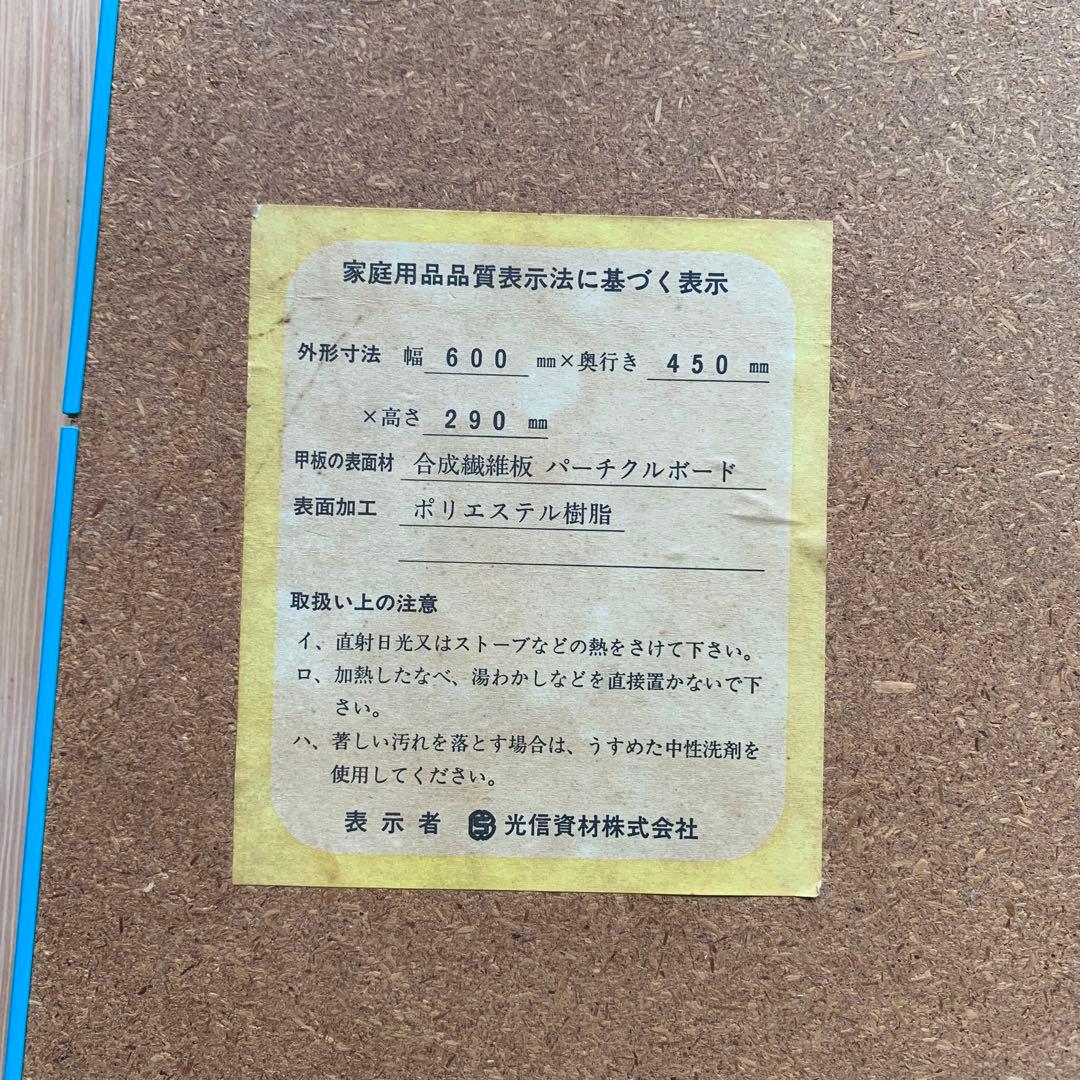 家庭用品品質表示法に基づく表示
外形寸法 幅 600 mm×奥行き 450 mm
×高さ 290 mm
甲板の表面材 合成繊維板 パーチクルボード
表面加工 ポリエステル樹脂
取扱い上の注意
イ、直射日光又はストーブなどの熱をさけて下さい。
ロ、加熱したなべ、湯わかしなどを直接置かないで下
さい。
ハ、著しい汚れを落とす場合は、うすめた中性洗剤を
使用してください。
表示者 光信資材株式会社